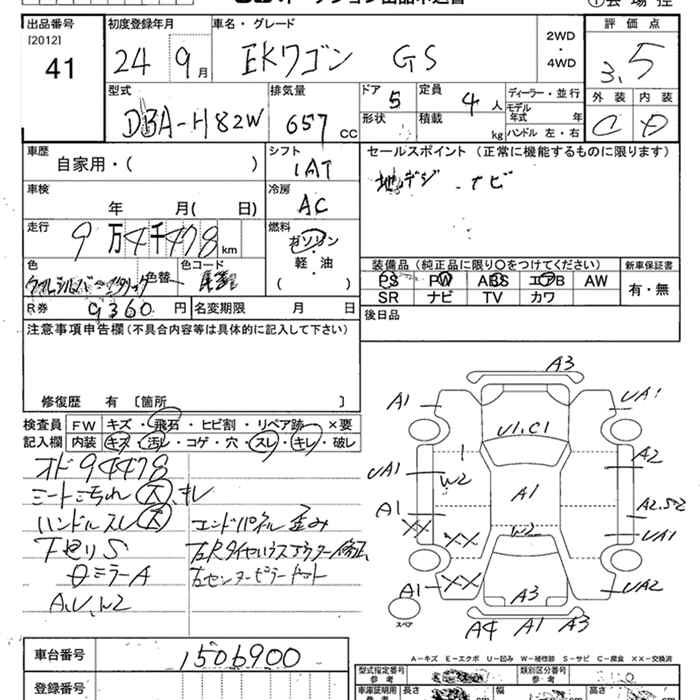 出品番号 初度登録年月 車名・グレード 2WD・4WD 評価点
[2012]
41 24年 9月 EKワゴン GS 3.5
外装 内装
C D
型式 排気量 ドア 定員 ディーラー・並行
DBA-H82W 657 CC 5 4人 モデル年式 年
形状 積載 kg ハンドル 左・右
車歴 シフト セールスポイント (正常に機能するものに限ります)
自家用・( ) IAT 地デジ ナビ
車検 冷房
年 月( 日) AC
走行 燃料
9万4千478 km ガソリン
軽・油
( )
色 色替 色コード
装備品(純正品に限り○をつけてください) 新車保証書
PS PW ABS エアB AW 有・無
SR ナビ TV カワ
R券 9360円 名変期限 月 日 後日品
注意事項申告欄(不具合内容等は具体的に記入して下さい)
修復歴 有 〔箇所 〕
検査員記入欄 FW キズ・飛石・ヒビ割・リペア跡 ×要
内装 キズ・汚レ・コゲ・穴・スレ・キレ・破レ
オド94478
シート汚れ 大、キレ
ハンドルスレ 大 エンドパネル歪み
下廻りS
ミラーA
A,U,W2
A3
A1 UA1
U1,C1
UA1 W2 A2
A1 A1 A2.S2
XX XX W2 UA1
A1 XX A3 UA2
スペア A4 A1 A3
A-キズ E-エクボ U-凹み W-補修跡 S-サビ C-腐食 XX-交換済
車台番号 1506900
登録番号
型式指定番号 参考 類別区分番号 参考
長さ 幅 高さ